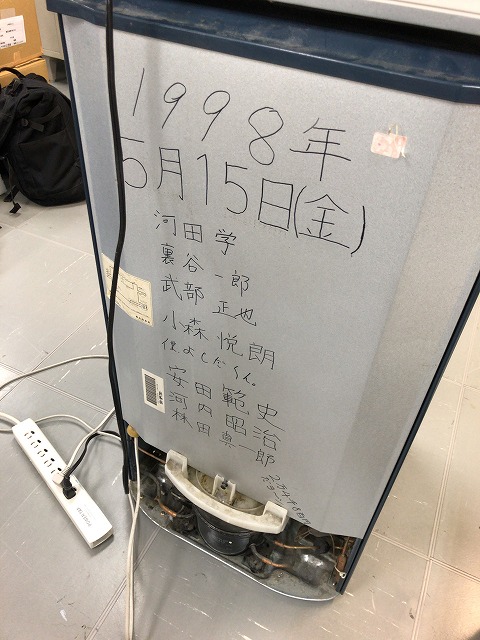 1998年
5月15日(金)
河田 学
裏谷 一郎
武部 正也
小森 悦朗
僕よしだくん。
安田 範史
河内 昭治
林田 真一郎